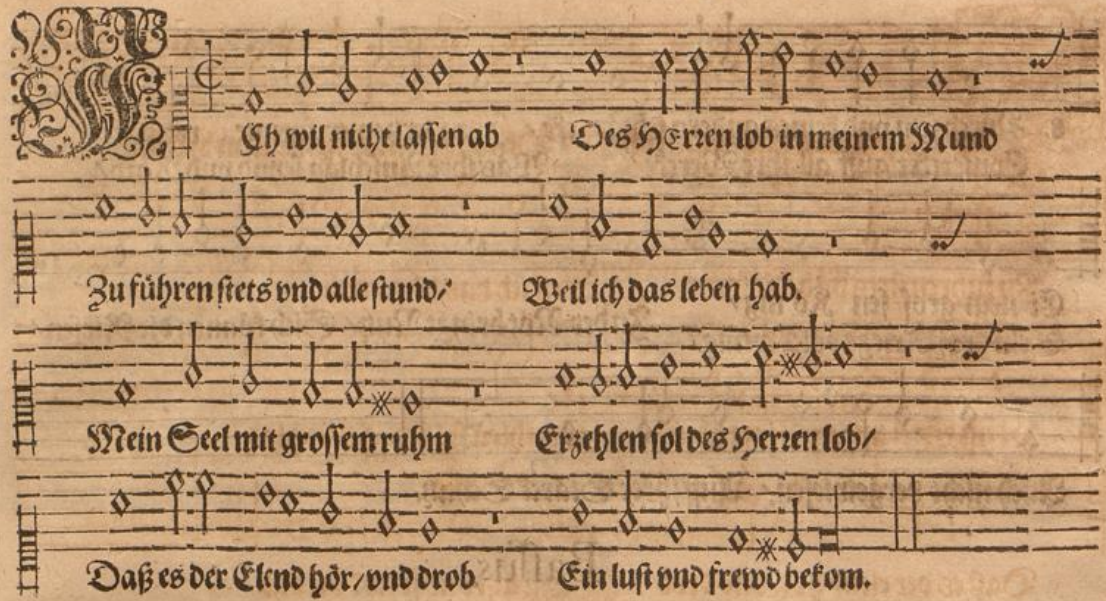 ICh wil nicht lassen ab Des HErren lob in meinem Mund
Zu führen stets vnd alle stund/ Weil ich das leben hab.
Mein Seel mit grossem ruhm Erzehlen sol des Herren lob/
Daß es der Elend hör/ vnd drob Ein lust vnd frewd bekom.